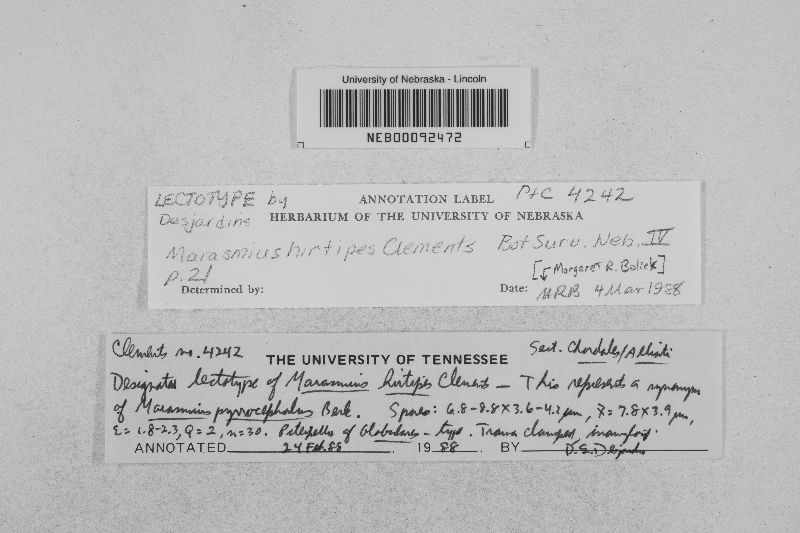 University of Nebraska - Lincoln
NEB00092472
LECTOTYPE by ANNOTATION LABEL P+C 4242
Desjardins HERBARIUM OF THE UNIVERSITY OF NEBRASKA
Marasmius hirtipes Clements Bot Surv. Neb. IV
p. 21 [Margaret R. Bolick]
Determined by: Date: MRB 4 Mar 1988
Clements no. 4242 THE UNIVERSITY OF TENNESSEE Sect. Chordales/Alliati
Designated lectotype of Marasmius hirtipes Clements — This represents a synonym
of Marasmius pyrrocephalus Berk. Spores: 6.8-8.8 x 3.6-4.2 µm, x̄ = 7.8 x 3.9 µm,
E = 1.8-2.3, Q = 2, n = 30. Pileipellis of Globulares-type. Trama clamped, inamyloid.
ANNOTATED 24 Feb. 88 1988 BY D.E. Desjardin